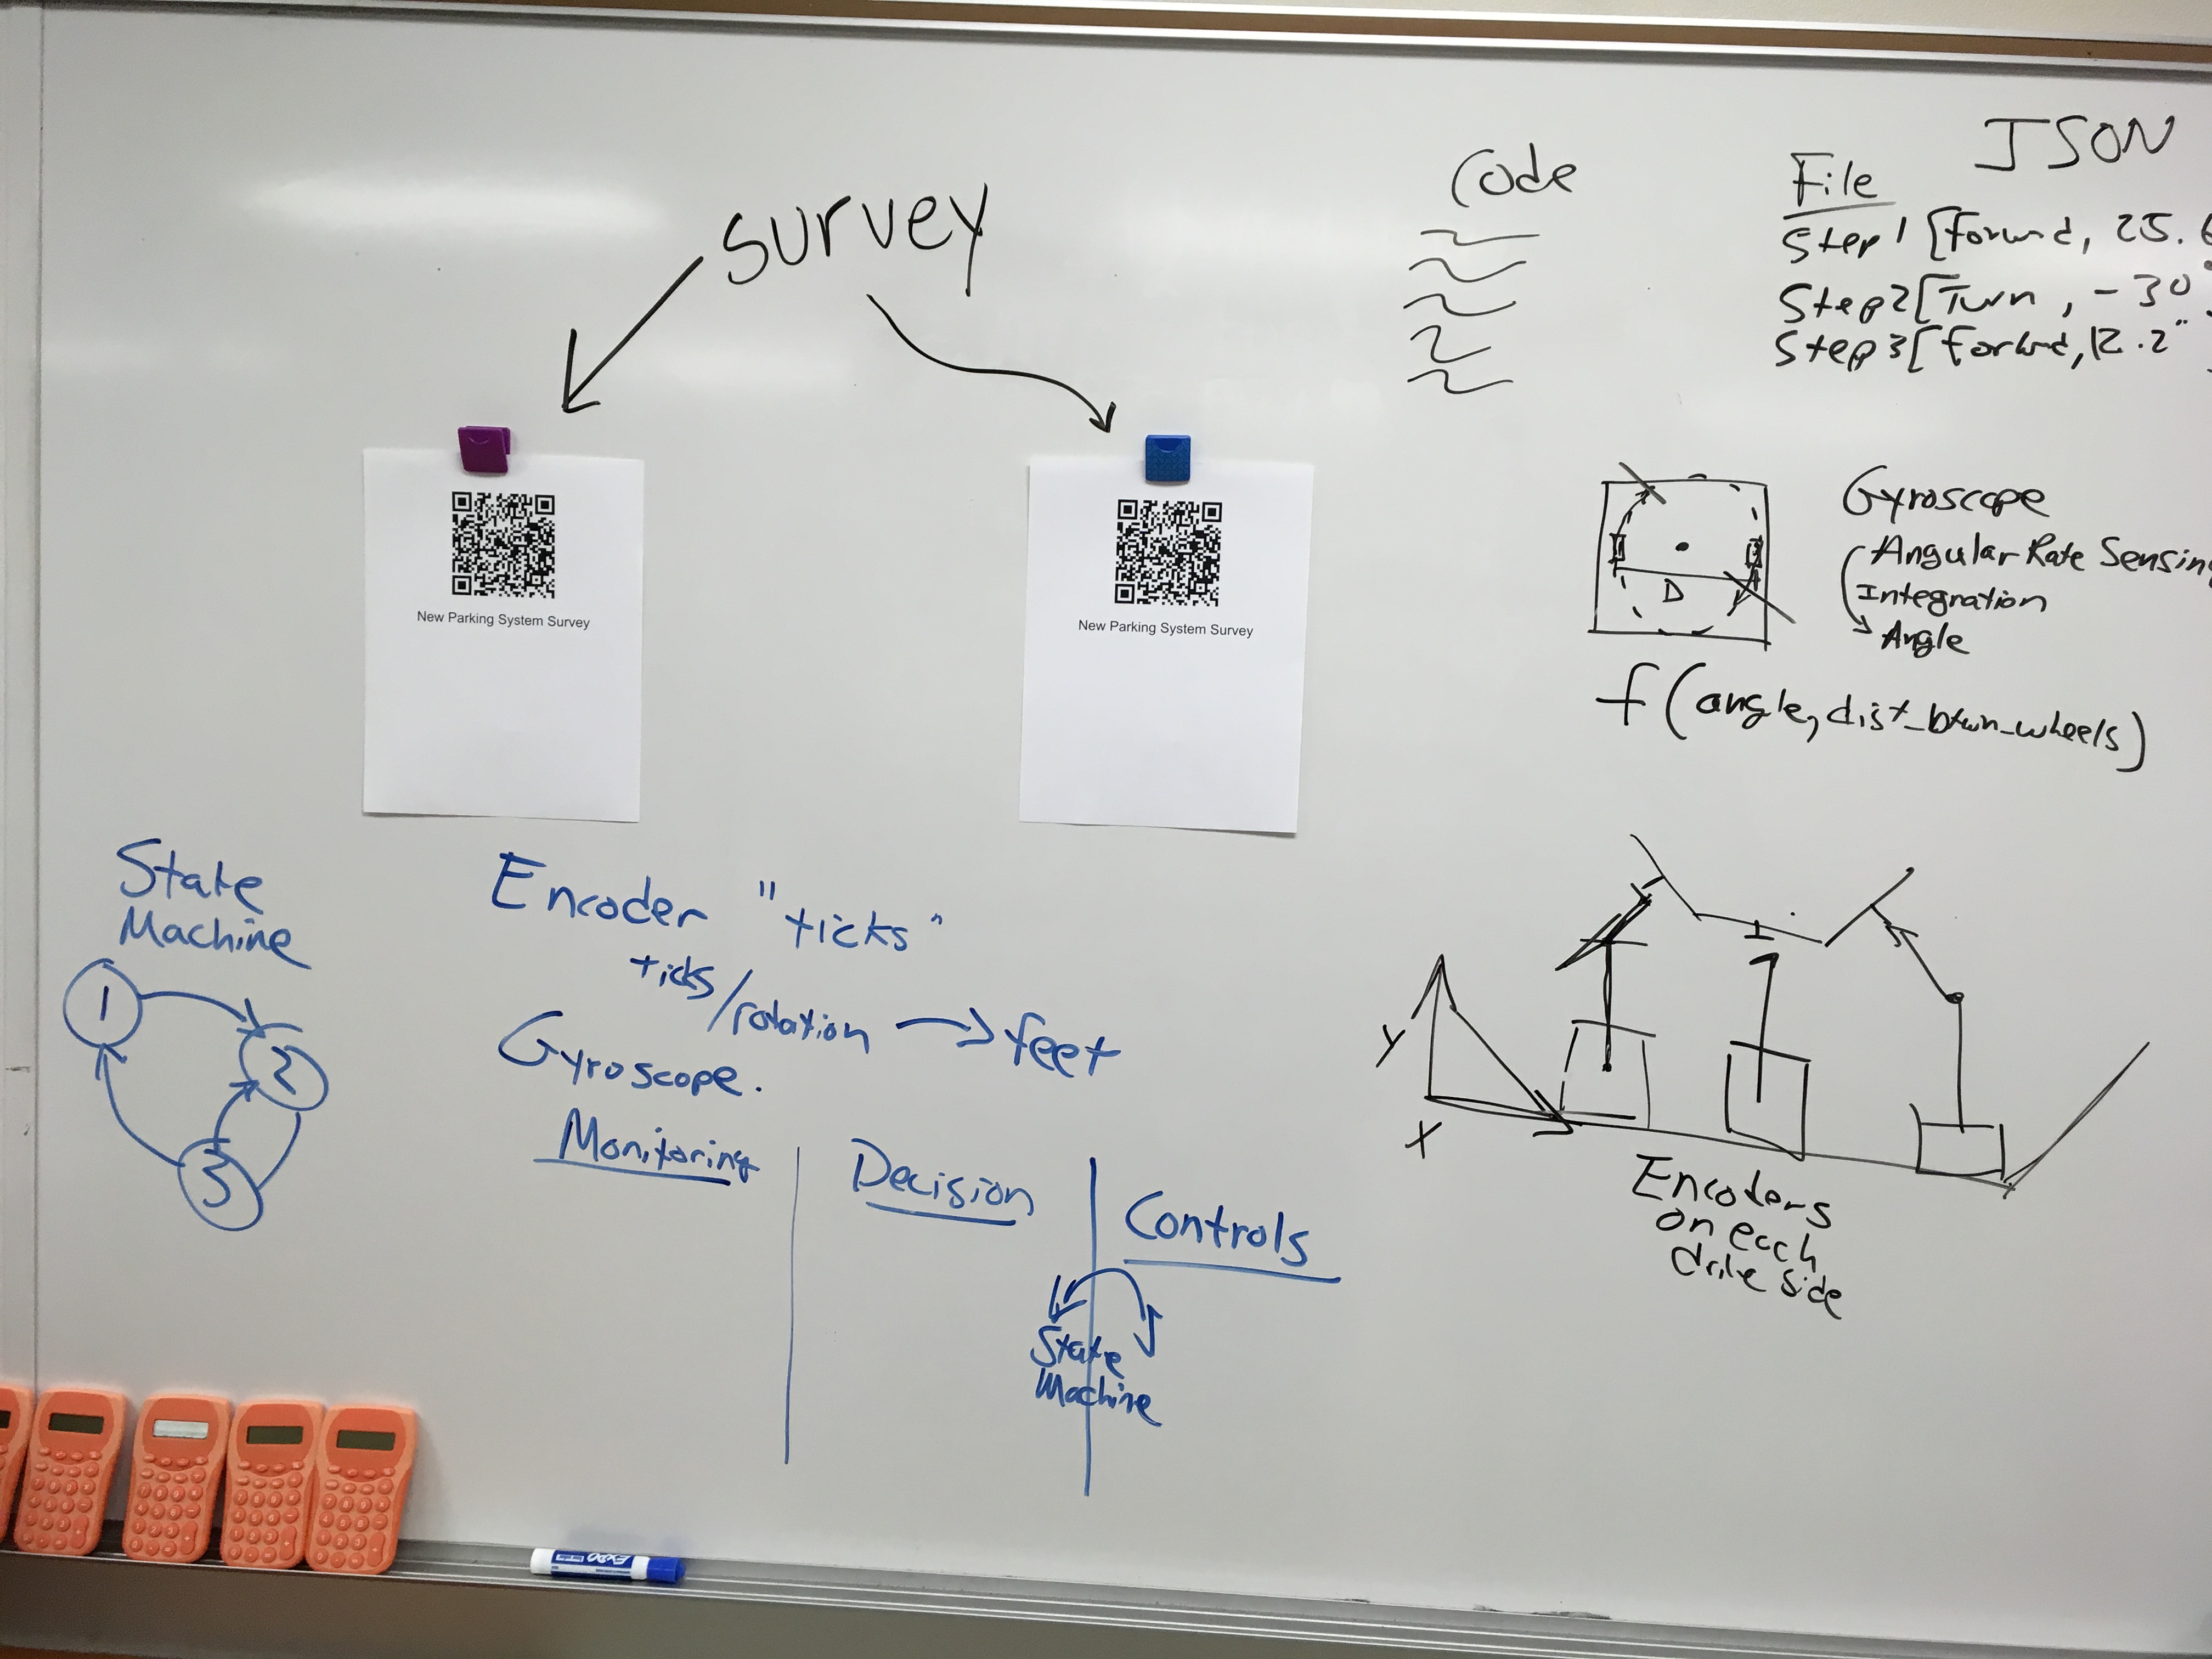 survey
New Parking System Survey
New Parking System Survey
Code
JSON
File
Step 1 [Forward, 25.6
Step 2 [Turn, -30°
Step 3 [Forward, 12.2"
Gyroscope
Angular Rate Sensing
Integration
Angle
D
f(angle, dist_btwn_wheels)
State
Machine
1
2
3
Encoder "ticks"
ticks/rotation → feet
Gyroscope.
Monitoring
Decision
Controls
State
Machine
Y
X
Encoders
on each
drive side
EXPO